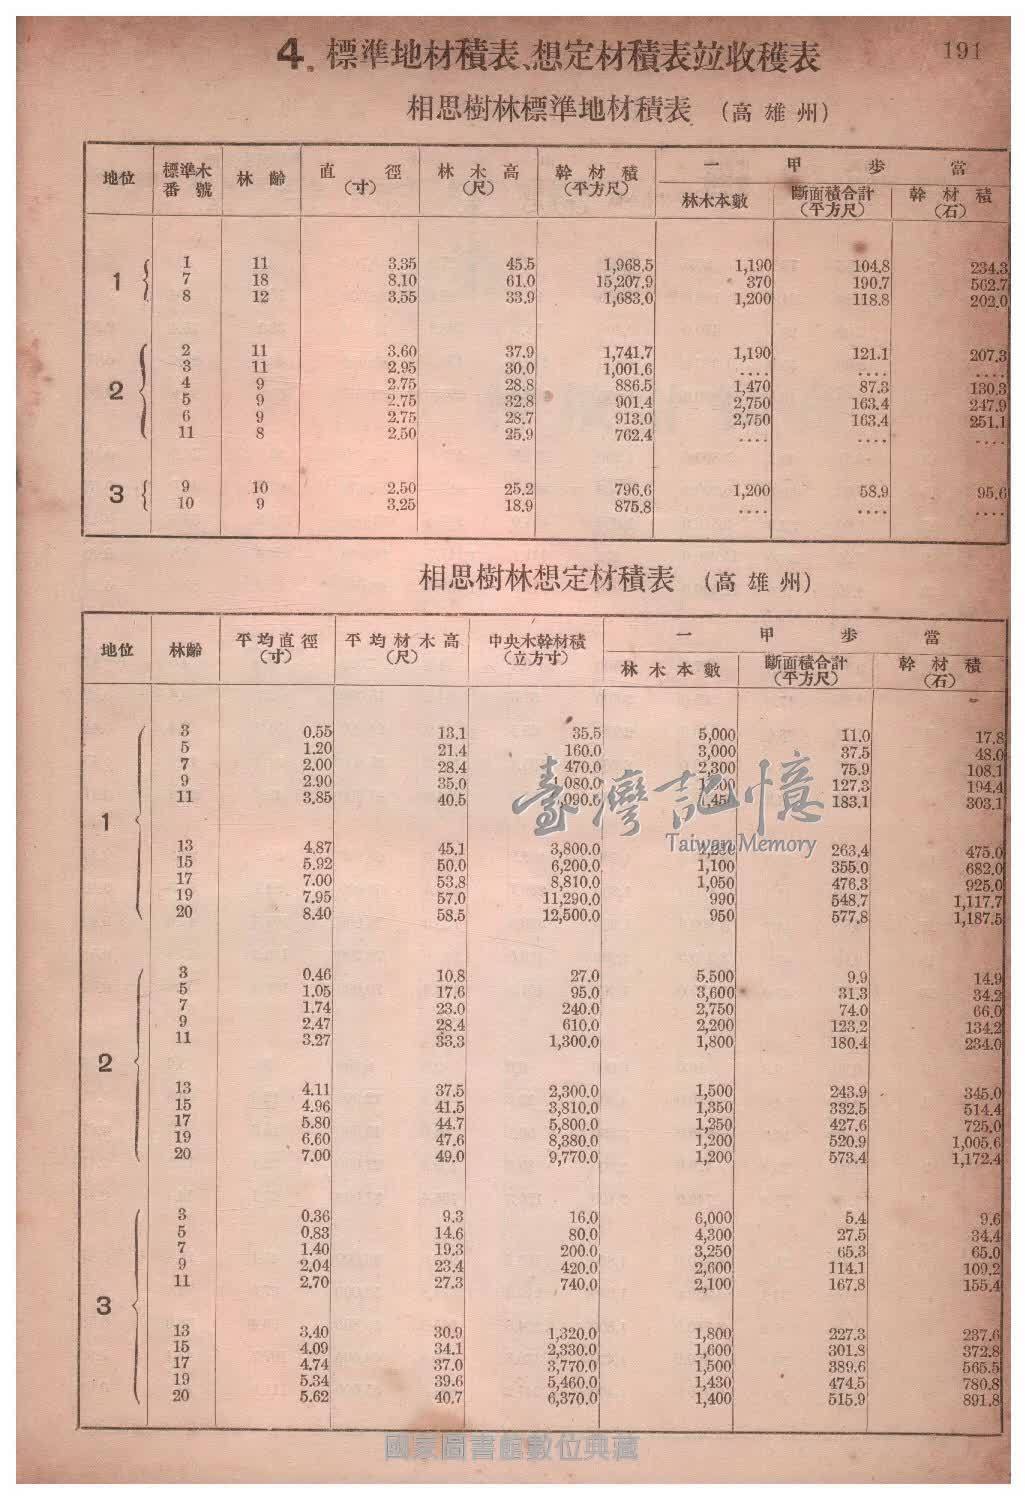 191
4. 標準地材積表、想定材積表竝收穫表
相思樹林標準地材積表 (高雄州)
地位 標準木番號 林齡 直徑(寸) 林木高(尺) 幹材積(平方尺) 一甲步當
林木本數 斷面積合計(平方尺) 幹材積(石)
1 1 11 3.35 45.5 1,968.5 1,190 104.8 234.3
7 18 8.10 61.0 15,207.9 370 190.7 562.7
8 12 3.55 33.9 1,683.0 1,200 118.8 202.0
2 2 11 3.60 37.9 1,741.7 1,190 121.1 207.3
3 11 2.95 30.0 1,001.6 .... .... ....
4 9 2.75 28.8 886.5 1,470 87.3 130.3
5 9 2.75 32.8 901.4 2,750 163.4 247.9
6 9 2.75 28.7 913.0 2,750 163.4 251.1
11 8 2.50 25.9 762.4 .... .... ....
3 9 10 2.50 25.2 796.6 1,200 58.9 95.6
10 9 3.25 18.9 875.8 .... .... ....
相思樹林想定材積表 (高雄州)
地位 林齡 平均直徑(寸) 平均材木高(尺) 中央木幹材積(立方寸) 一甲步當
林木本數 斷面積合計(平方尺) 幹材積(石)
1 3 0.55 13.1 35.5 5,000 11.0 17.8
5 1.20 21.4 160.0 3,000 37.5 48.0
7 2.00 28.4 470.0 2,300 75.9 108.1
9 2.90 35.0 ,080.0 127.3 194.4
11 3.85 40.5 ,090.0 183.1 303.1
13 4.87 45.1 3,800.0 263.4 475.0
15 5.92 50.0 6,200.0 1,100 355.0 682.0
17 7.00 53.8 8,810.0 1,050 476.3 925.0
19 7.95 57.0 11,290.0 990 548.7 1,117.7
20 8.40 58.5 12,500.0 950 577.8 1,187.5
2 3 0.46 10.8 27.0 5.500 9.9 14.9
5 1.05 17.6 95.0 3,600 31.3 34.2
7 1.74 23.0 240.0 2,750 74.0 66.0
9 2.47 28.4 610.0 2,200 123.2 134.2
11 3.27 33.3 1,300.0 1,800 180.4 234.0
13 4.11 37.5 2,300.0 1,500 243.9 345.0
15 4.96 41.5 3,810.0 1,350 332.5 514.4
17 5.80 44.7 5,800.0 1,250 427.6 725.0
19 6.60 47.6 8,380.0 1,200 520.9 1,005.6
20 7.00 49.0 9,770.0 1,200 573.4 1,172.4
3 3 0.36 9.3 16.0 6,000 5.4 9.6
5 0.83 14.6 80.0 4,300 27.5 34.4
7 1.40 19.3 200.0 3,250 65.3 65.0
9 2.04 23.4 420.0 2,600 114.1 109.2
11 2.70 27.3 740.0 2,100 167.8 155.4
13 3.40 30.9 1,320.0 1,800 227.3 237.6
15 4.09 34.1 2,330.0 1,600 301.8 372.8
17 4.74 37.0 3,770.0 1,500 389.6 565.5
19 5.34 39.6 5,460.0 1,430 474.5 780.8
20 5.62 40.7 6,370.0 1,400 515.9 891.8
臺灣記憶
Taiwan Memory
國家圖書館數位典藏